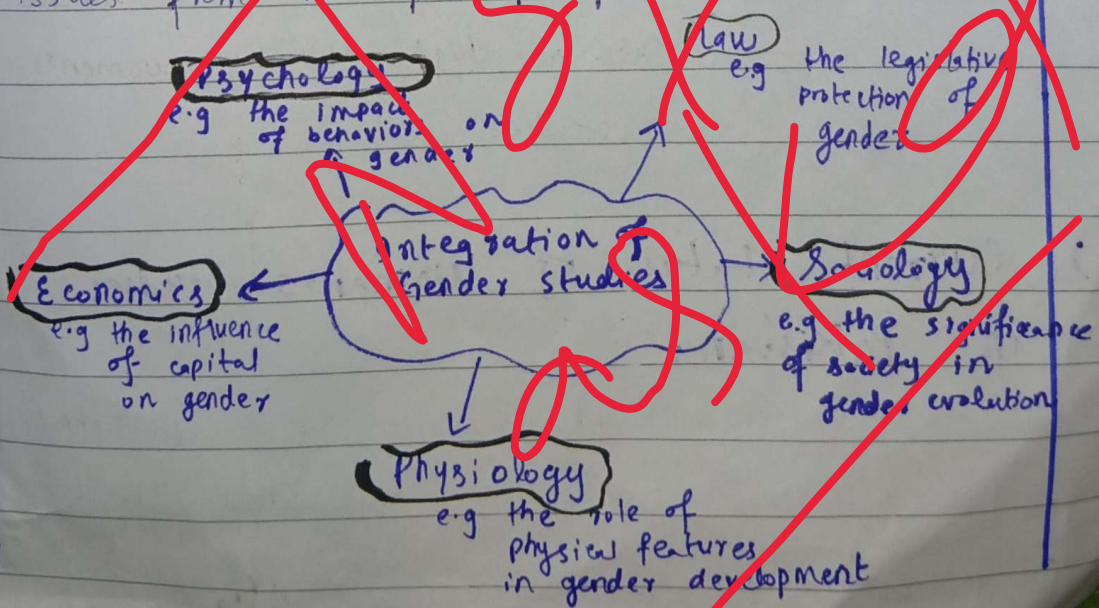 issues
Psychology
e.g the impact
of behaviors on
gender
Law
e.g the legislative
protection of
gender
Integration of
Gender studies
Economics
e.g the influence
of capital
on gender
Sociology
e.g the significance
of society in
gender evolution
Physiology
e.g the role of
physical features
in gender development